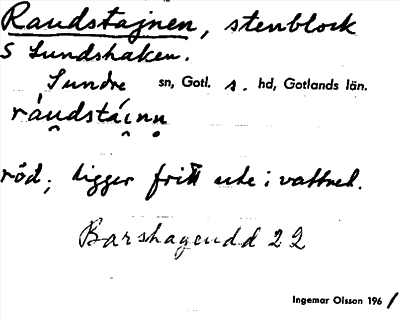 Raudstajnen, stenblock
S Sundshaken.
Sundre sn, Gotl. s. hd, Gotlands län.
ráudstáinn
röd; ligger fritt ute i vattnet.
Barshagendd 22
Ingemar Olsson 1961